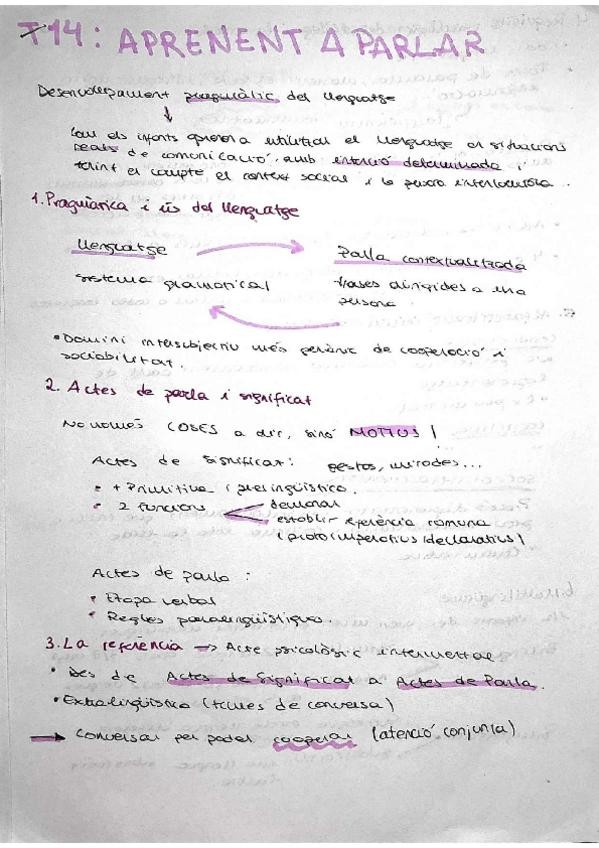 T14: APRENENT A PARLAR
Desenvolupament pragmàtic del llenguatge
↓
Com els infants aprenen a utilitzar el llenguatge en situacions
reals de comunicació, amb intenció determinada i
tenint el compte el context social i la persona interlocutora.
1. Pragmàtica i ús del llenguatge
llenguatge → Parla contextualitzada
sistema gramatical frases dirigides a una
persona
• Domini intersubjectiu més genèric de cooperació i
sociabilitat.
2. Actes de parla i significat
No només COSES a dir, sinó MOTIUS!
Actes de significat: gestos, mirades...
• + Primitiva i prelingüístico.
• 2 funcions demanar
establir referència comuna
(protoimperatius/declaratius)
Actes de parla:
• Etapa verbal
• Regles paralingüístiques.
3. La referència → Acte psicològic intermental
• Des de Actes de Significat a Actes de Parla.
• Extralingüística (títules de conversa)
→ Conversar per poder cooperar (atenció conjunta)